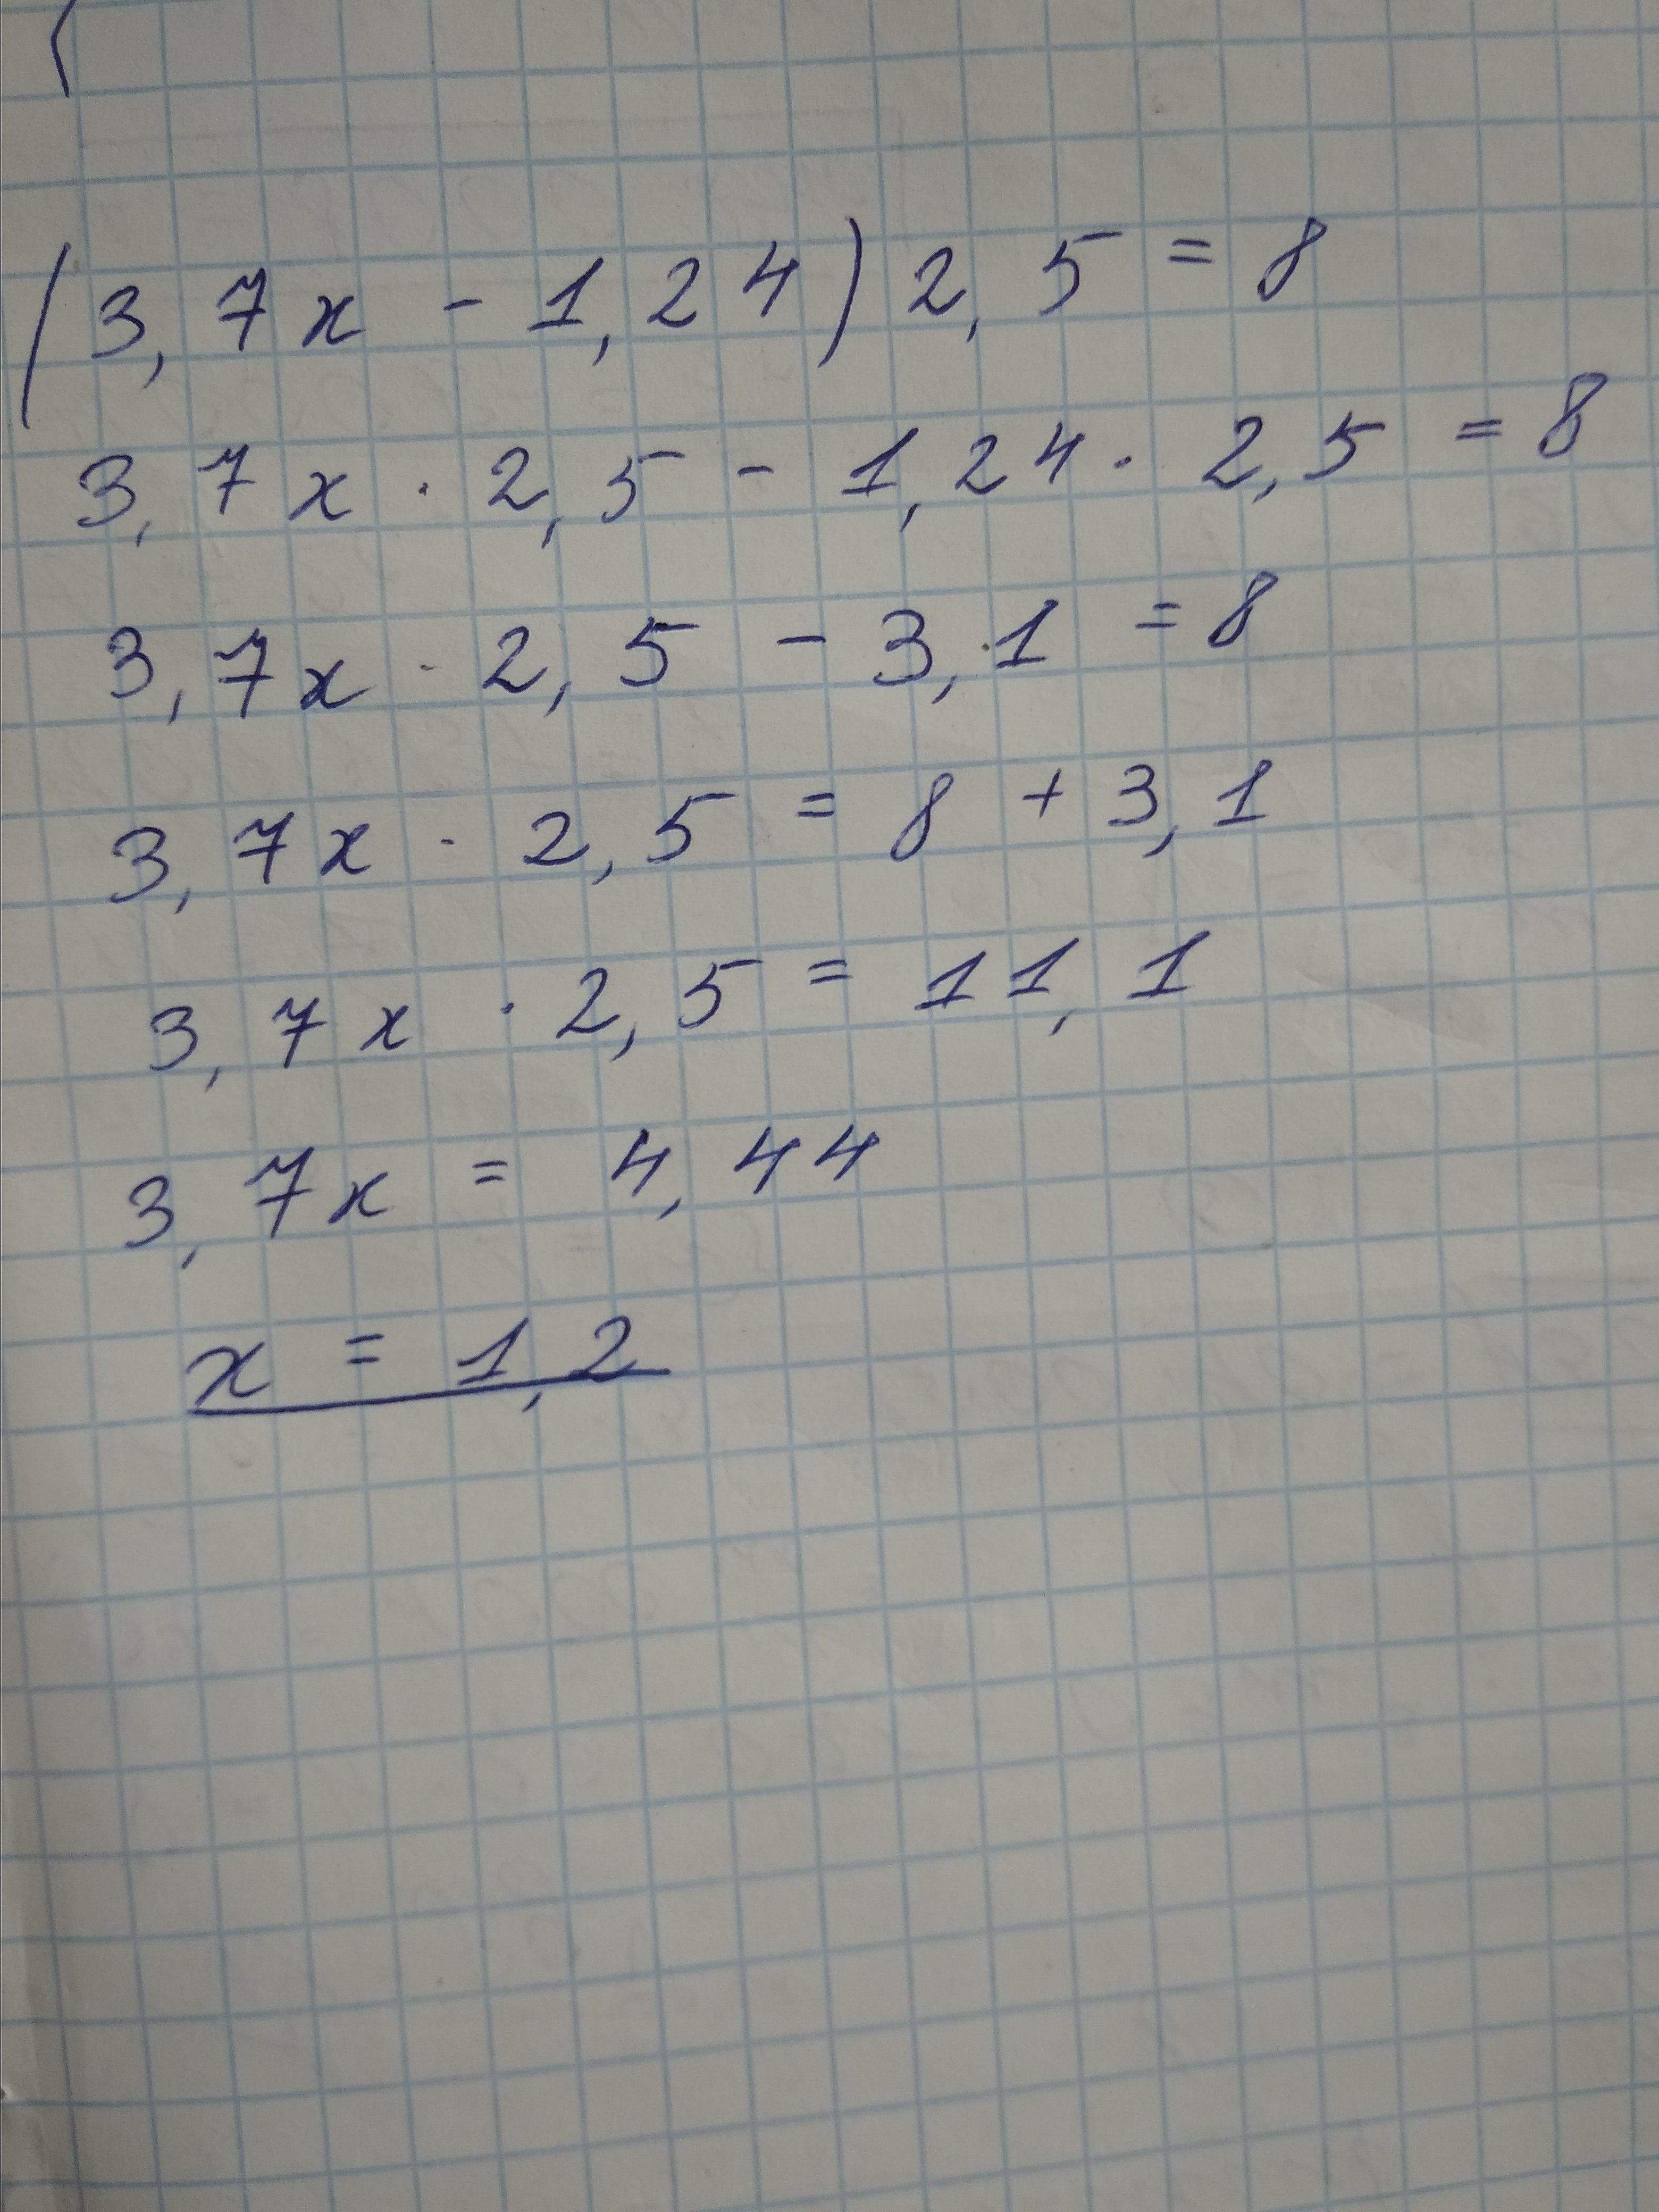 (3,7x - 1,24) 2,5 = 8
3,7x · 2,5 - 1,24 · 2,5 = 8
3,7x · 2,5 - 3,1 = 8
3,7x · 2,5 = 8 + 3,1
3,7x · 2,5 = 11,1
3,7x = 4,44
x = 1,2